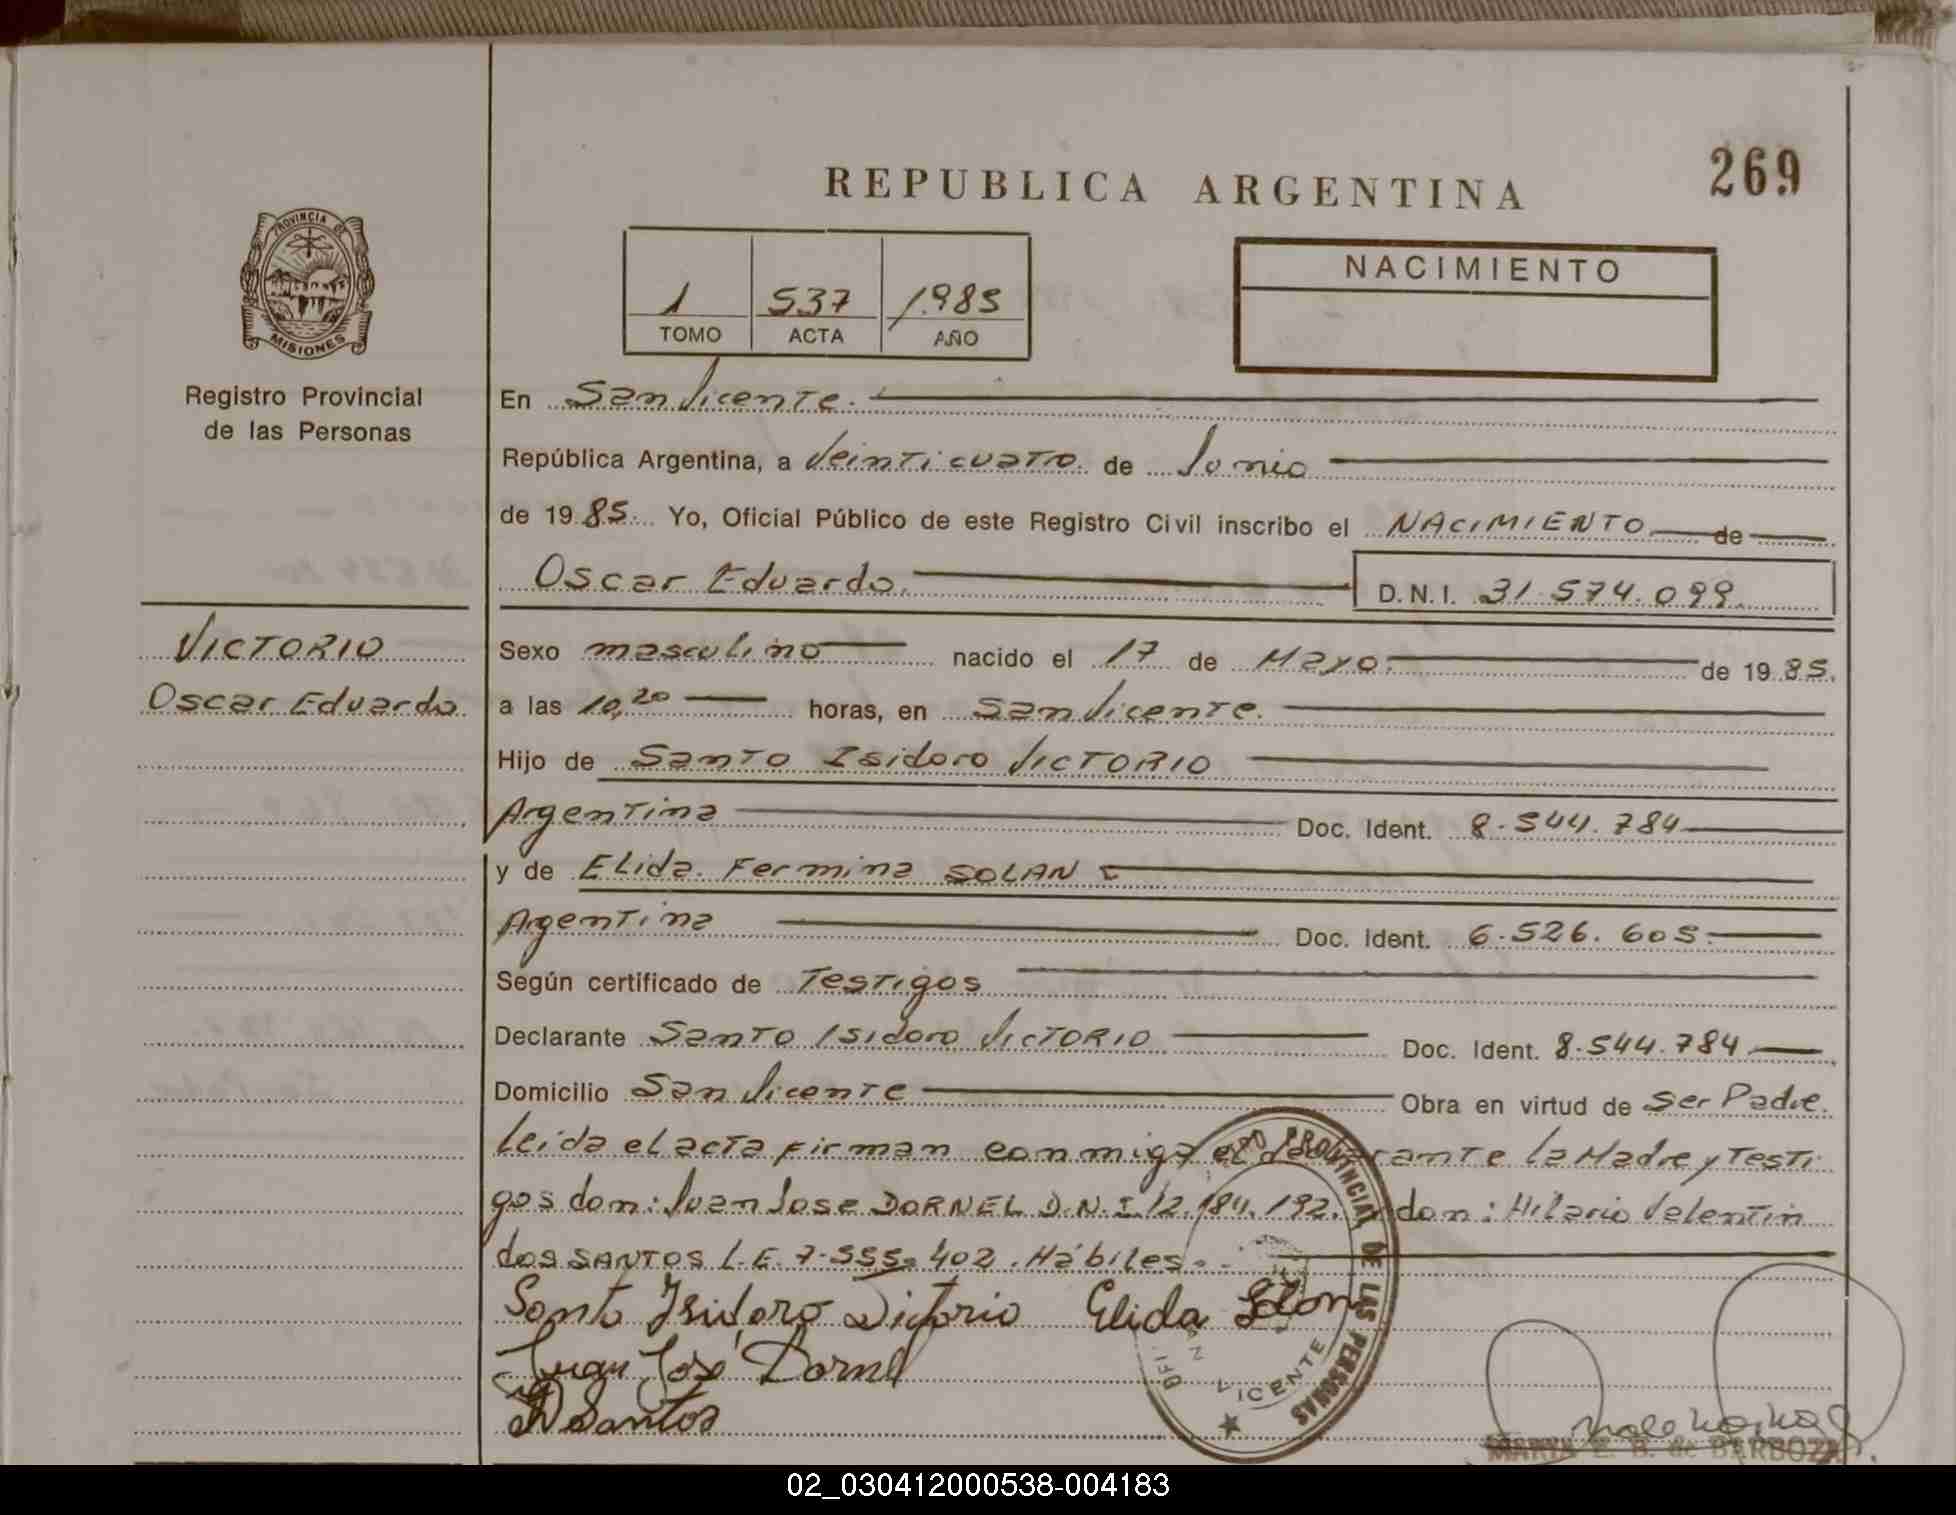 REPUBLICA ARGENTINA
269
PROVINCIA DE
MISIONES
Registro Provincial
de las Personas
1 537 1985
TOMO ACTA AÑO
NACIMIENTO
En San Vicente.
República Argentina, a Veinticuatro de Junio
de 1985. Yo, Oficial Público de este Registro Civil inscribo el NACIMIENTO de
Oscar Eduardo. D.N.I. 31.574.099
VICTORIO
Oscar Eduardo
Sexo masculino nacido el 17 de Mayo. de 1985.
a las 10,20 horas, en San Vicente.
Hijo de Santo Isidoro VICTORIO
Argentina Doc. Ident. 8.544.784
y de Elida Fermina SOLAN
Argentina Doc. Ident. 6.526.605.
Según certificado de Testigos
Declarante Santo Isidoro VICTORIO Doc. Ident. 8.544.784
Domicilio San Vicente Obra en virtud de Ser Padre.
Leida el acta firman conmigo el declarante la Madre y Testi
gos don: Juan Jose DORNEL D.N.I. 12.184.192. y don: Hilario Valentin
dos SANTOS L.E. 7.555.402. Hábiles.
Santo Isidoro Victorio Elida Solan
Juan José Dornel
D Santos
PROVINCIAL DE LAS PERSONAS
VICENTE
MARTA E. B. de BARBOZA
02_030412000538-004183